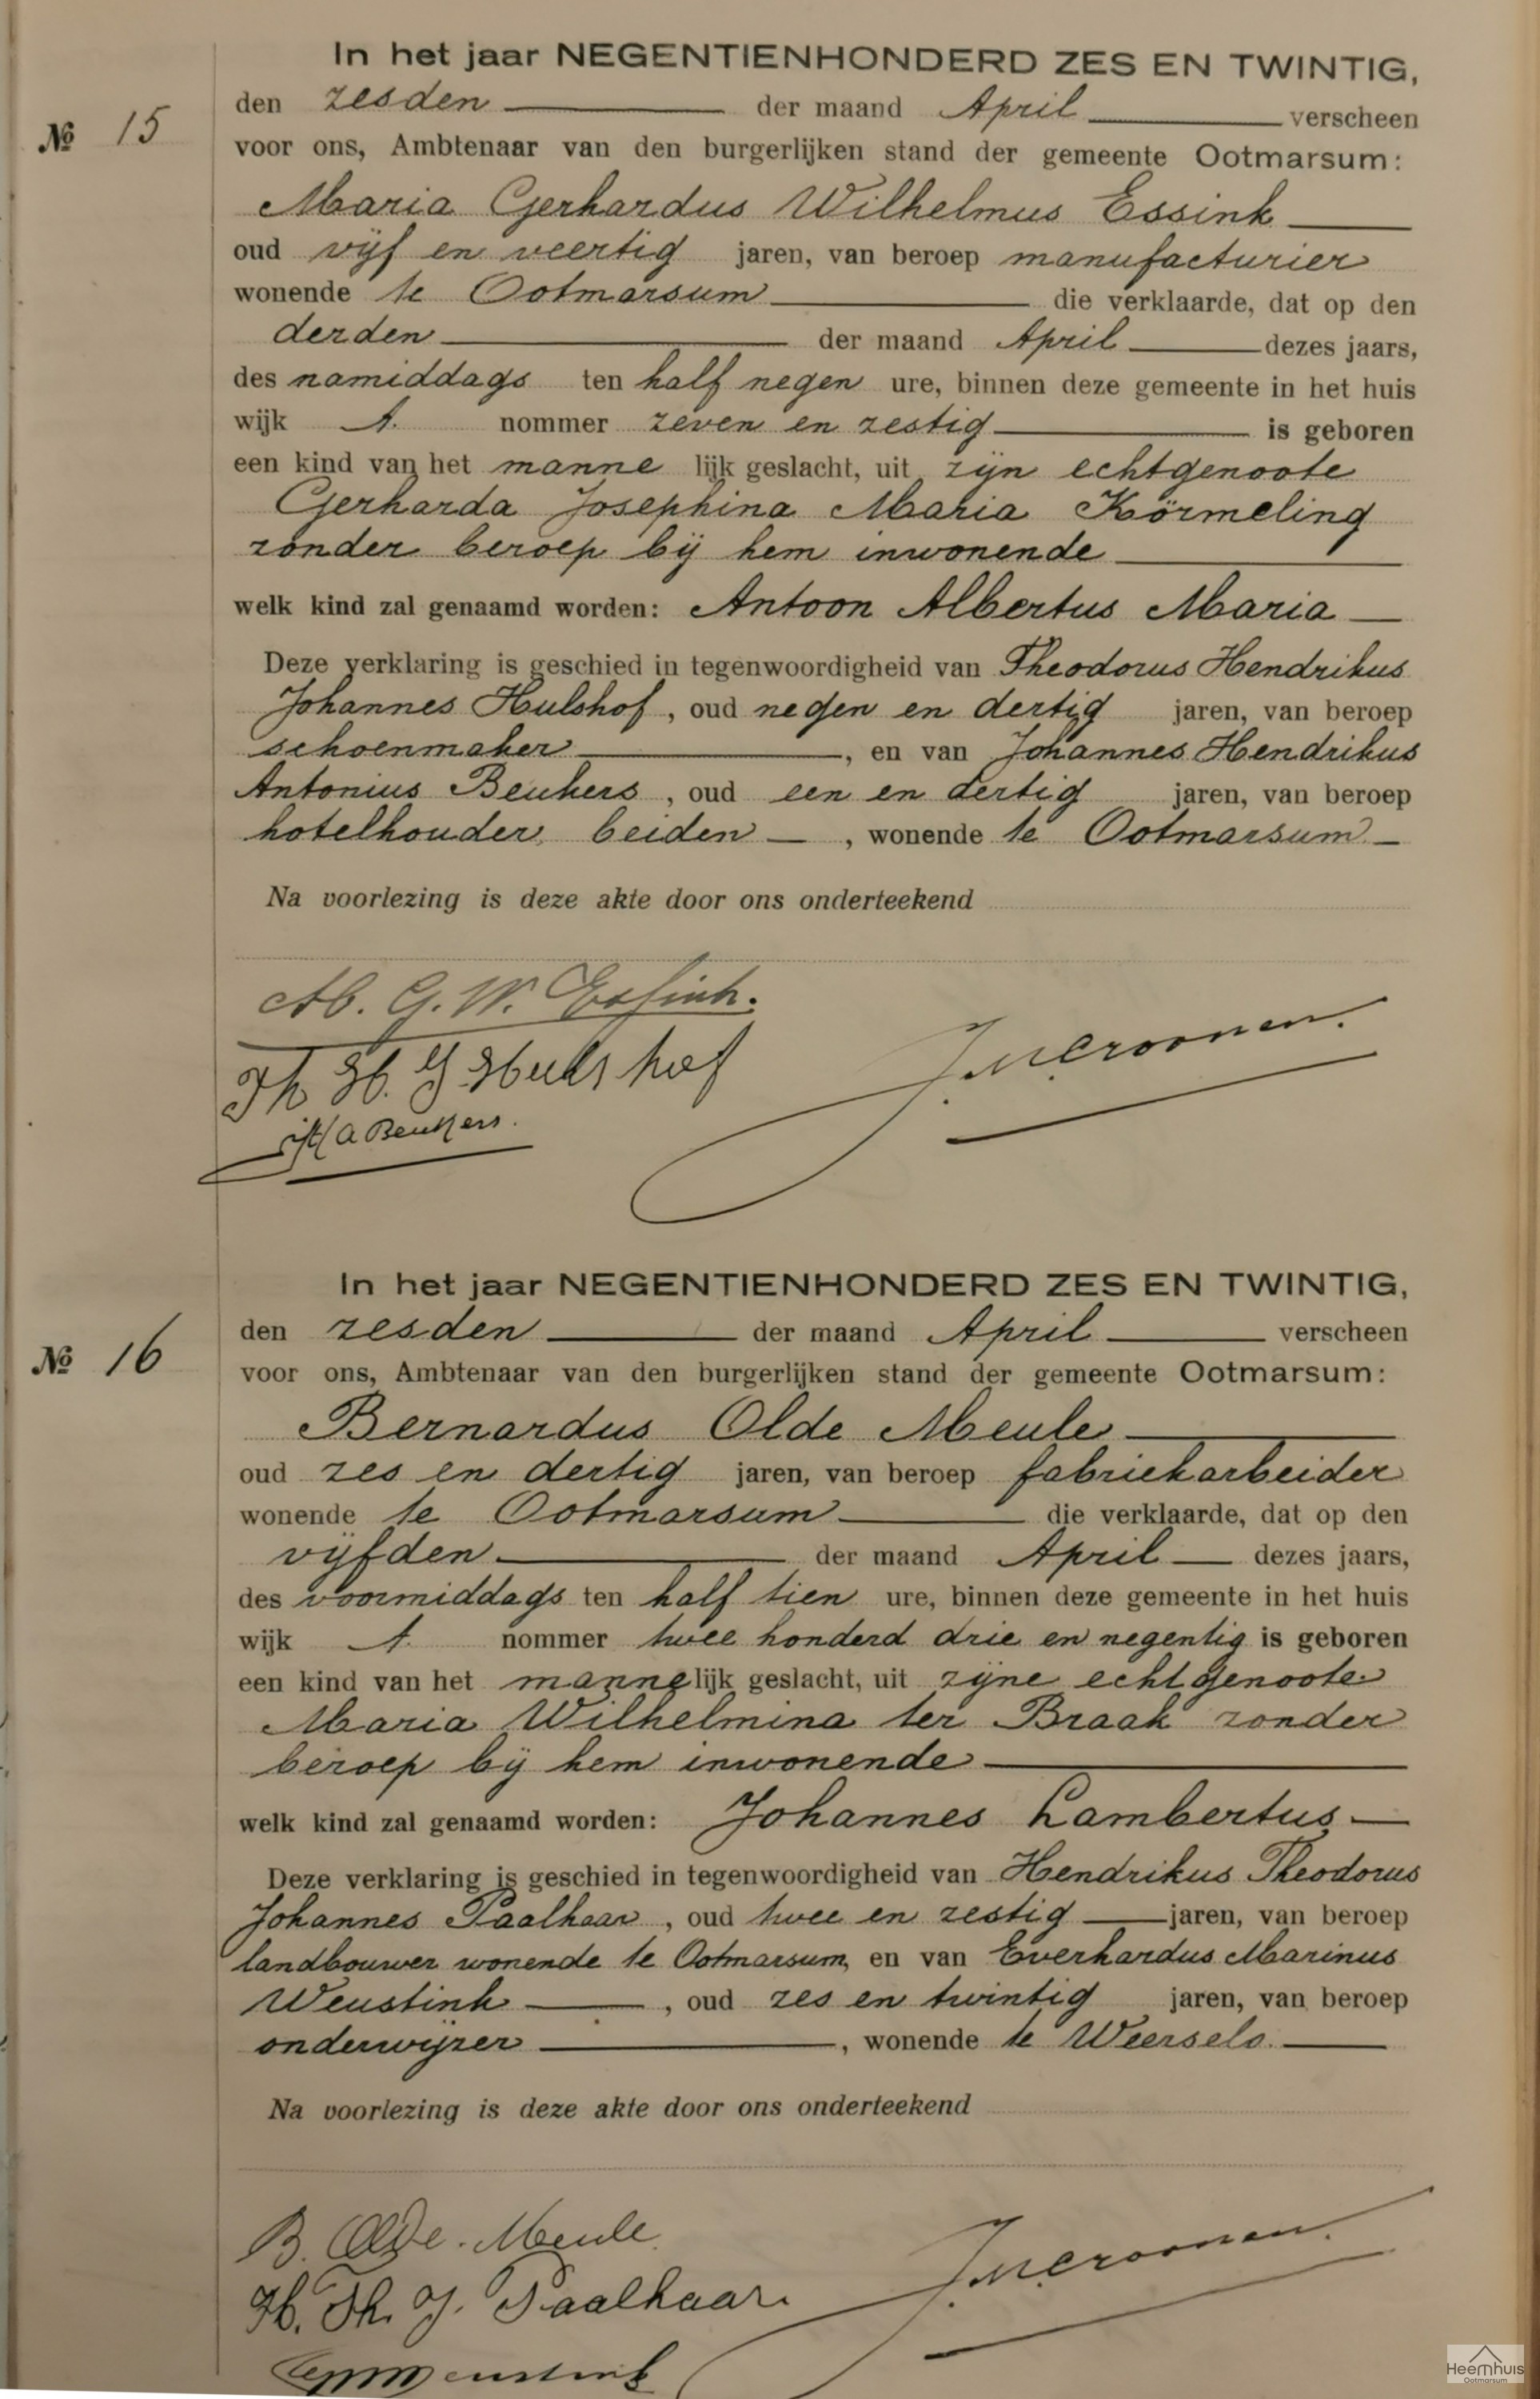 In het jaar NEGENTIENHONDERD ZES EN TWINTIG,
den zesden der maand April verscheen
№ 15
voor ons, Ambtenaar van den burgerlijken stand der gemeente Ootmarsum:
Maria Gerhardus Wilhelmus Essink
oud vijf en veertig jaren, van beroep manufacturier
wonende te Ootmarsum die verklaarde, dat op den
derden der maand April dezes jaars,
des namiddags ten half negen ure, binnen deze gemeente in het huis
wijk A. nommer zeven en zestig is geboren
een kind van het manne lijk geslacht, uit zijn echtgenoote
Gerharda Josephina Maria Körmeling
zonder beroep bij hem inwonende
welk kind zal genaamd worden: Antoon Albertus Maria
Deze verklaring is geschied in tegenwoordigheid van Theodorus Hendrikus
Johannes Hulshof, oud negen en dertig jaren, van beroep
schoenmaker, en van Johannes Hendrikus
Antonius Beukers, oud een en dertig jaren, van beroep
hotelhouder, beiden, wonende te Ootmarsum
Na voorlezing is deze akte door ons onderteekend
M. G. W. Essink.
Th. H. J. Hulshof
JH A Beukers.
In het jaar NEGENTIENHONDERD ZES EN TWINTIG,
den zesden der maand April verscheen
№ 16
voor ons, Ambtenaar van den burgerlijken stand der gemeente Ootmarsum:
Bernardus Olde Meule
oud zes en dertig jaren, van beroep fabriekarbeider
wonende te Ootmarsum die verklaarde, dat op den
vijfden der maand April dezes jaars,
des voormiddags ten half tien ure, binnen deze gemeente in het huis
wijk A. nommer twee honderd drie en negentig is geboren
een kind van het mannelijk geslacht, uit zijne echtgenoote
Maria Wilhelmina ter Braak zonder
beroep bij hem inwonende
welk kind zal genaamd worden: Johannes Lambertus
Deze verklaring is geschied in tegenwoordigheid van Hendrikus Theodorus
Johannes Paalhaar, oud twee en zestig jaren, van beroep
landbouwer wonende te Ootmarsum, en van Everhardus Marinus
Weustink, oud zes en twintig jaren, van beroep
onderwijzer, wonende te Weerselo.
Na voorlezing is deze akte door ons onderteekend
B. Olde-Meule.
H. Th. J. Paalhaar.
Weustink
Heemhuis
Ootmarsum